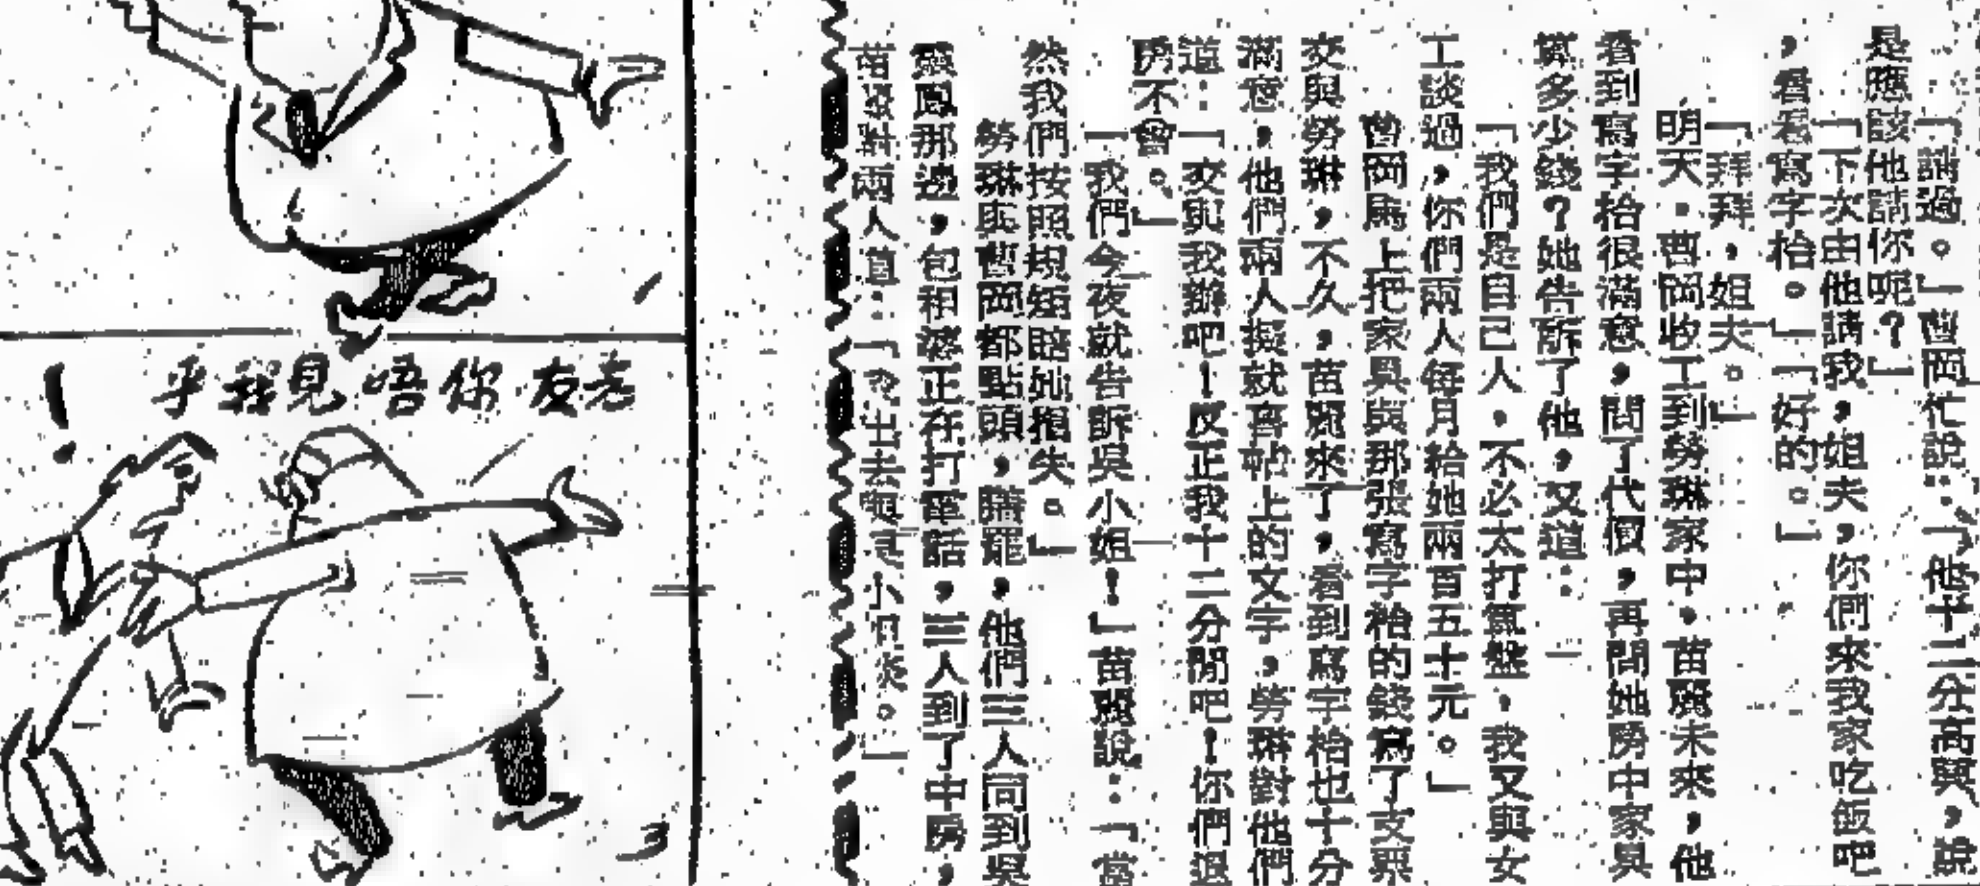 「請過。」曹岡忙說：「他十二分高興，說
是應該他請你呢？」
「下次由他請我，姐夫，你們來我家吃飯吧
，看看寫字枱。」「好的。」
「拜拜，姐夫。」
明天，曹岡收工到勞琳家中，苗麗未來，他
看到寫字枱很滿意，問了代價，再問她房中家具
算多少錢？她告訴了他，又道：
「我們是自己人，不必太打算盤，我又與女
工談過，你們兩人每月給她兩百五十元。」
曹岡馬上把家具與那張寫字枱的錢寫了支票
交與勞琳，不久，苗麗來了，看到寫字枱也十分
滿意，他們兩人擬就啓帖上的文字，勞琳對他們
道：「交與我辦吧！反正我十二分閒吧！你們退
房不曾。」
「我們今夜就告訴吳小姐！」苗麗說：「當
然我們按照規矩賠她損失。」
勞琳與曹岡都點頭，膳罷，他們三人同到吳
鳳那邊，包租婆正在打電話，三人到了中房，
苗麗對兩人道：「去與吳小姐談。」
老友你唔見我乎！
3